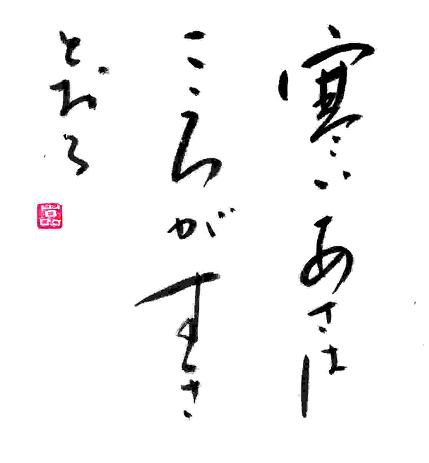 寒いあさは
こころがすき
とおる